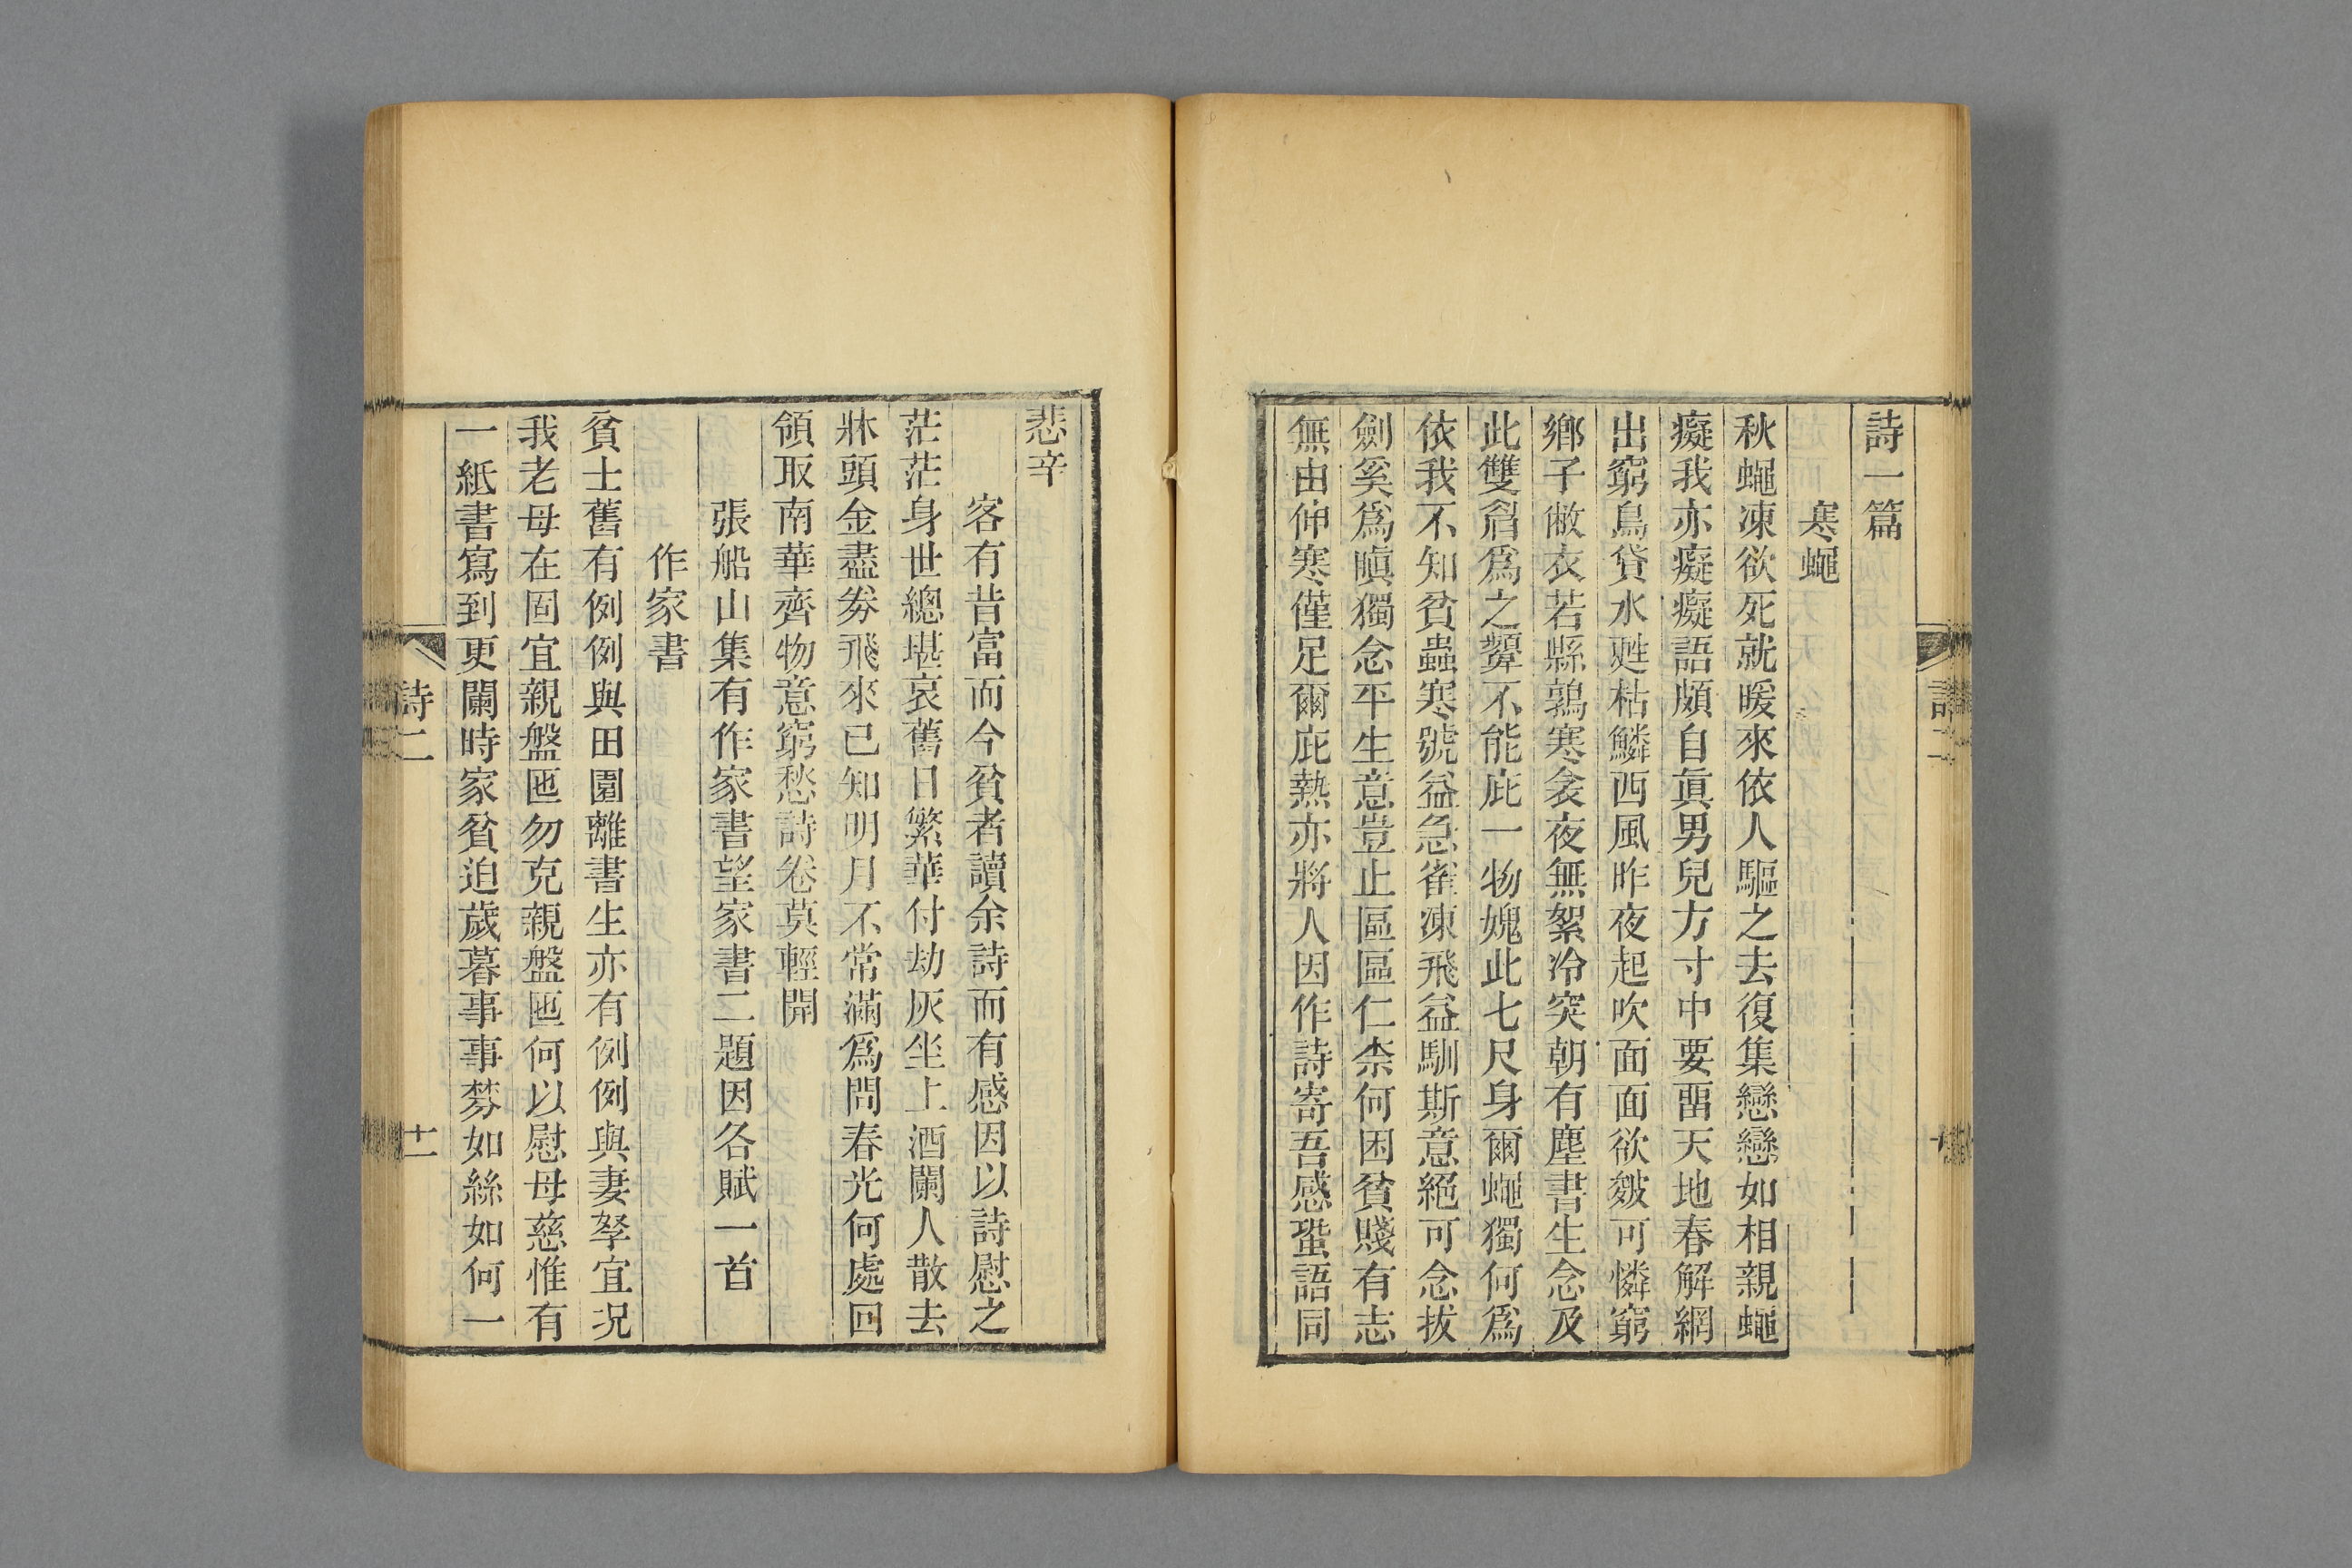 詩一篇
寒蠅
秋蠅凍欲死就暖來依人驅之去復集戀戀如相親蠅
癡我亦癡癡語頗自眞男兒方寸中要畱天地春解網
出窮鳥貸水甦枯鱗西風昨夜起吹面面欲皴可憐窮
鄉子敝衣若縣鶉寒衾夜無絮冷突朝有塵書生念及
此雙眉爲之顰不能庇一物媿此七尺身爾蠅獨何爲
依我不知貧蟲寒號益急雀凍飛益馴斯意絕可念拔
劍奚爲瞋獨念平生意豈止區區仁柰何困貧賤有志
無由伸寒僅足爾庇熱亦將人因作詩寄吾感蛩語同
悲辛
客有昔富而今貧者讀余詩而有感因以詩慰之
茫茫身世總堪哀舊日繁華付劫灰坐上酒闌人散去
牀頭金盡劵飛來已知明月不常滿爲問春光何處回
領取南華齊物意窮愁詩卷莫輕開
張船山集有作家書望家書二題因各賦一首
作家書
貧士舊有例例與田園離書生亦有例例與妻孥宜況
我老母在固宜親盤匜勿克親盤匜何以慰母慈惟有
一紙書寫到更闌時家貧迫歲暮事事棼如絲如何一
詩二
十一